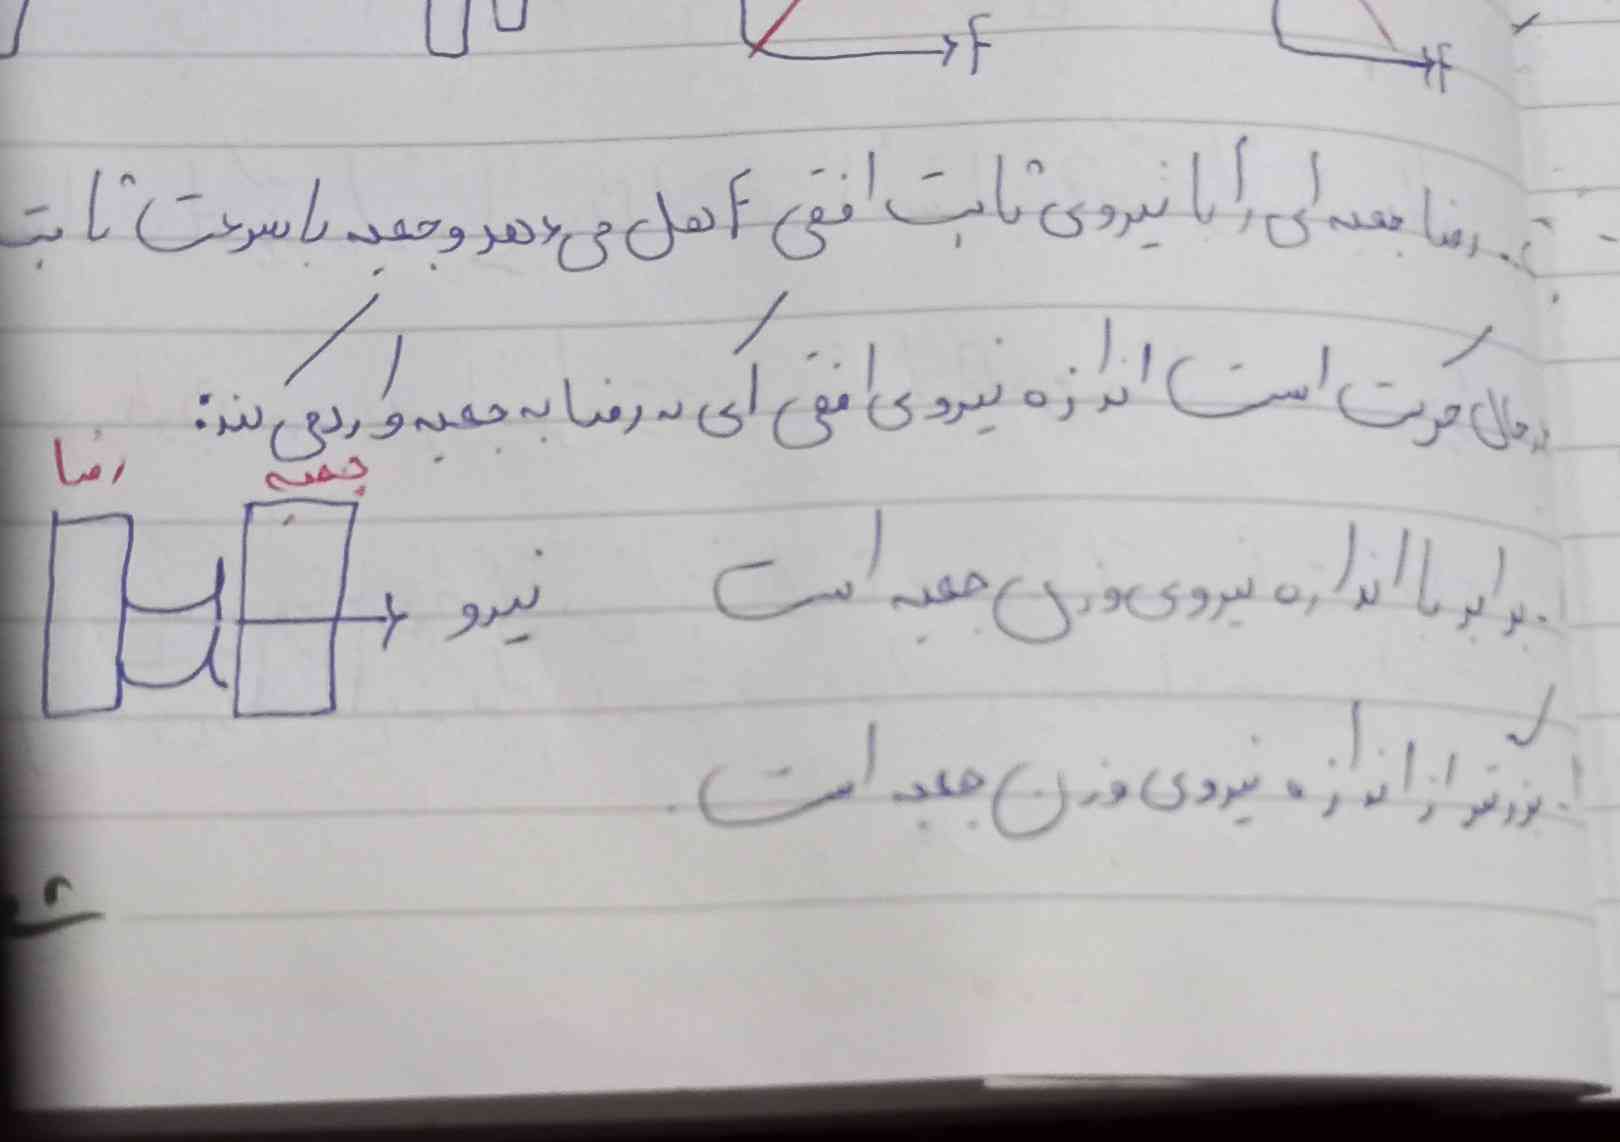 F
F
رضا جعبه ای را با نیروی ثابت افقی F هل می دهد و جعبه با سرعت ثابت
در حال حرکت است اندازه نیروی افقی ای که رضا به جعبه وارد می کند:
رضا
جعبه
برابر با اندازه نیروی وزن جعبه است
نیرو
بزرگتر از اندازه نیروی وزن جعبه است.